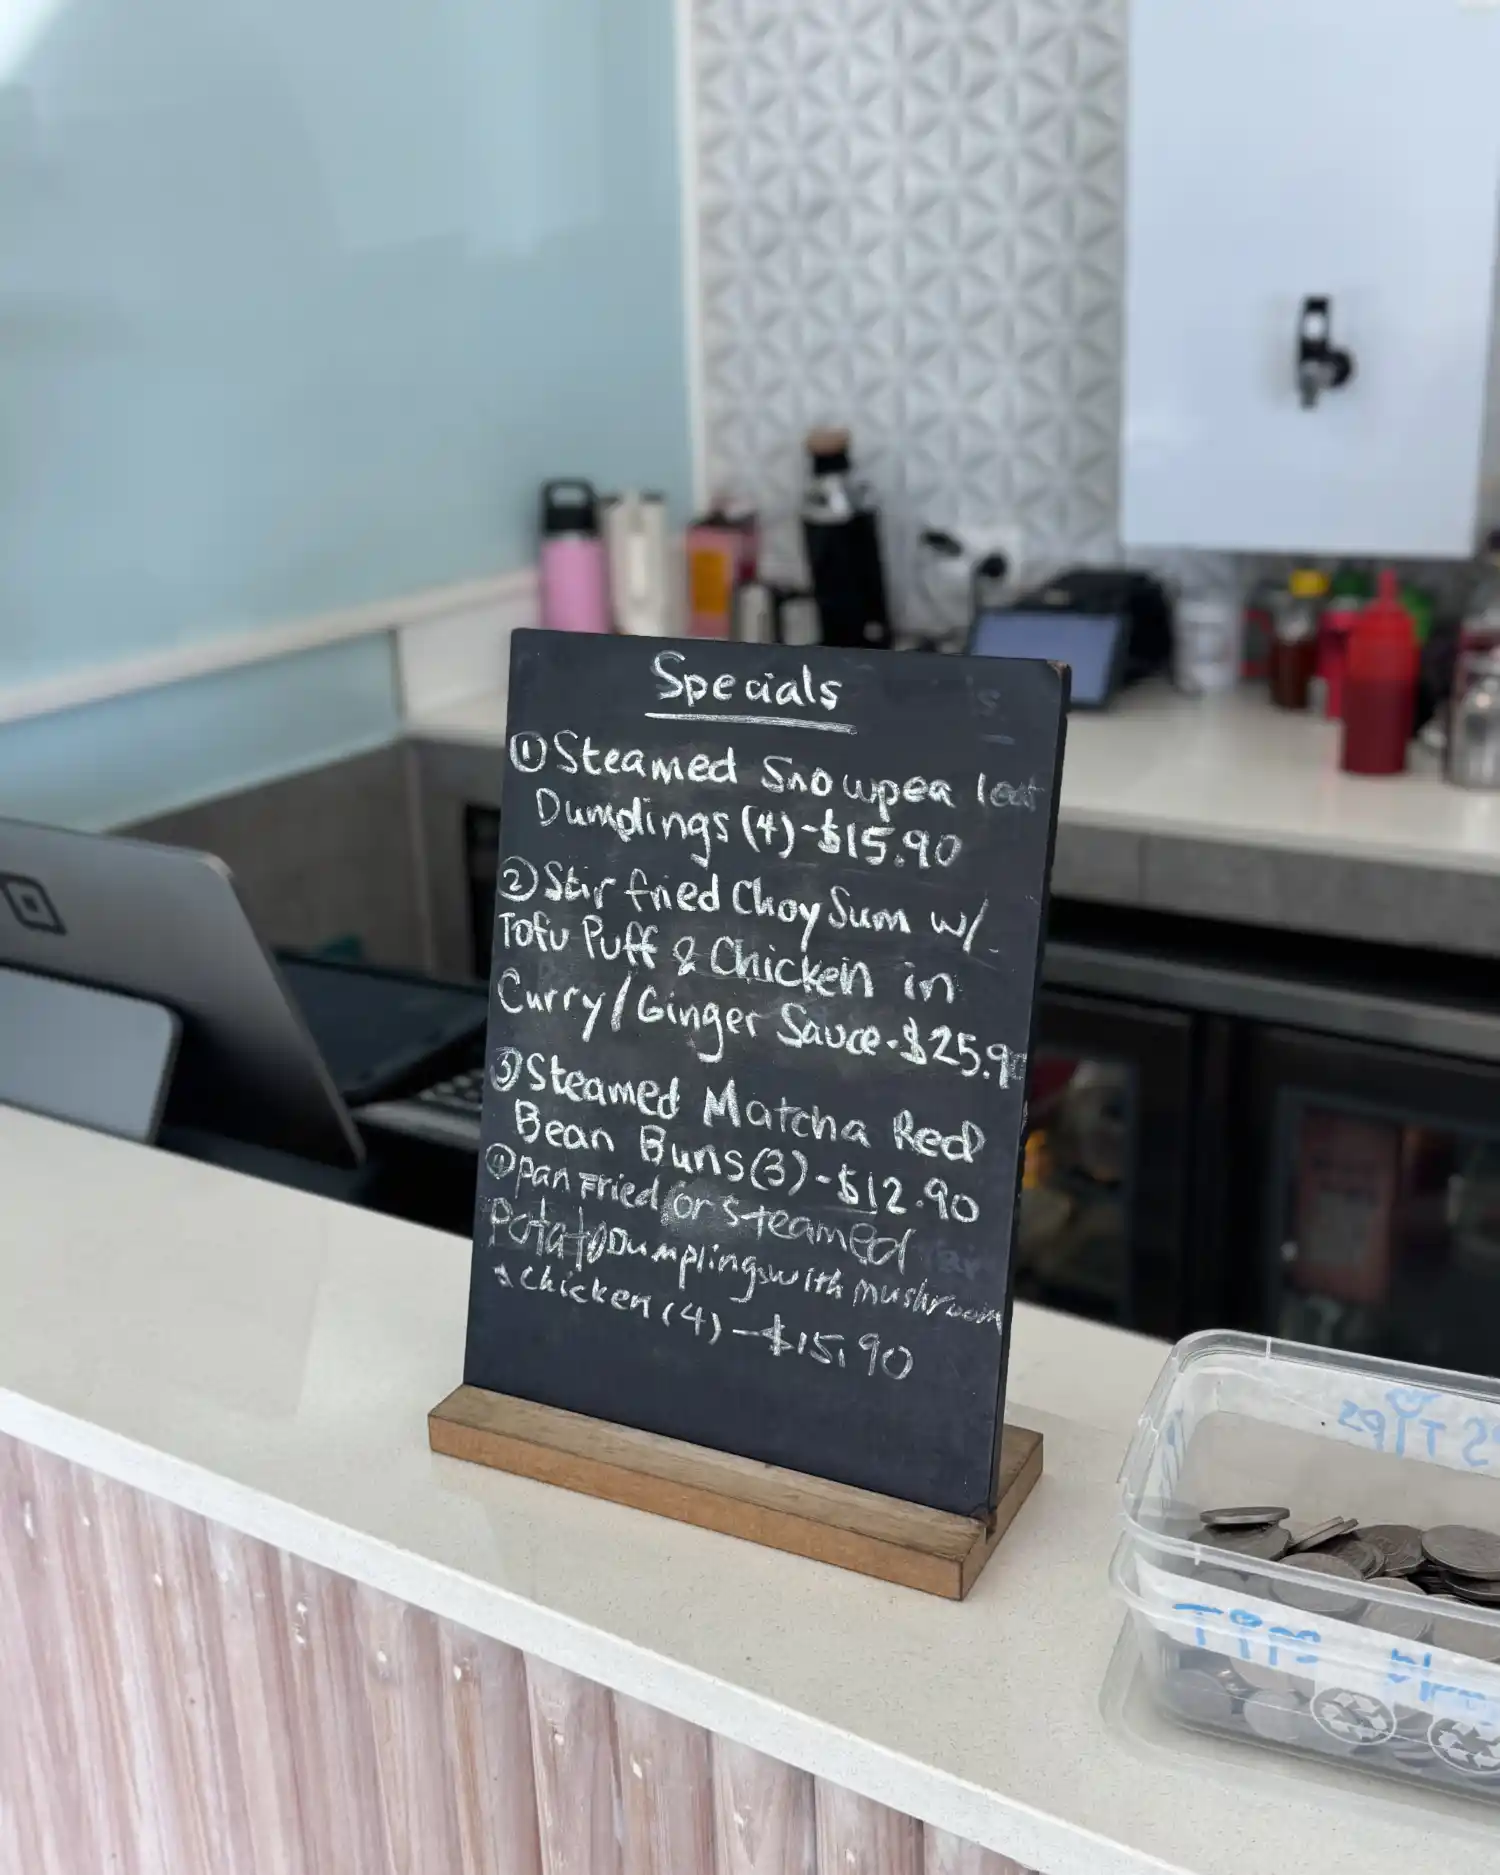 Specials
① Steamed Snowpea leaf
Dumplings (4) - $15.90
② Stir fried Choy Sum w/
Tofu Puff & Chicken in
Curry/Ginger Sauce - $25.90
③ Steamed Matcha Red
Bean Buns (3) - $12.90
④ Pan Fried or steamed
Potato Dumplings with mushroom
& Chicken (4) - $15.90
TIPS
Tips